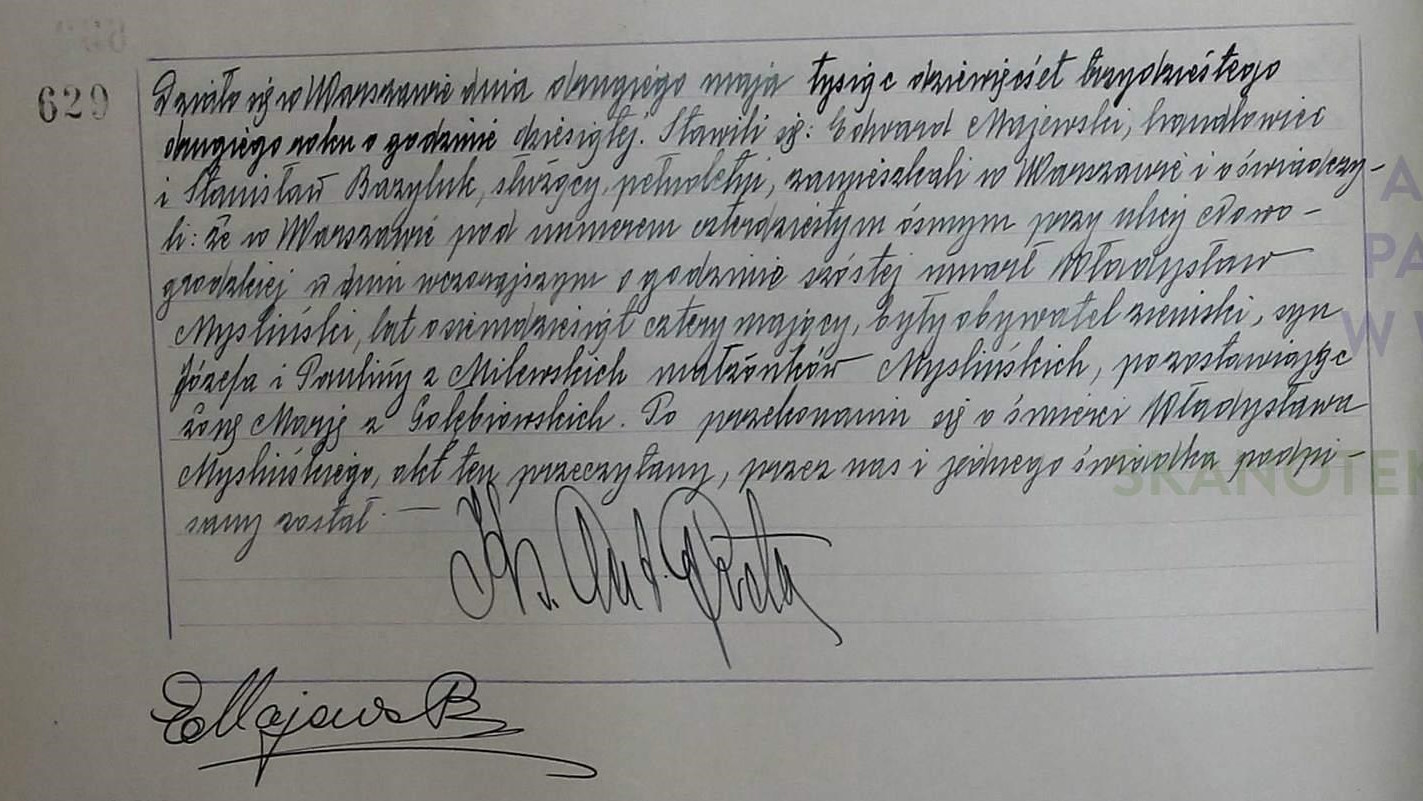 629
Działo się w Warszawie dnia drugiego maja tysiąc dziewięćset trzydziestego
drugiego roku o godzinie dziesiątej. Stawili się: Edward Majewski, handlowiec
i Stanisław Bazyluk, służący, pełnoletni, zamieszkali w Warszawie i oświadczy-
li: że w Warszawie pod numerem czterdziestym ósmym przy ulicy Nowo-
grodzkiej w dniu wczorajszym o godzinie szóstej umarł Władysław
Mysliński, lat osiemdziesiąt cztery mający, były obywatel ziemski, syn
Józefa i Pauliny z Milewskich małżonków Myslińskich, pozostawiając
żonę Marję z Gołębiowskich. Po przekonaniu się o śmierci Władysława
Myslińskiego, akt ten przeczytany, przez nas i jednego świadka podpi-
sany został. —
Ks. Ant.
EMajewski
A
PA
W W
SKANOTE